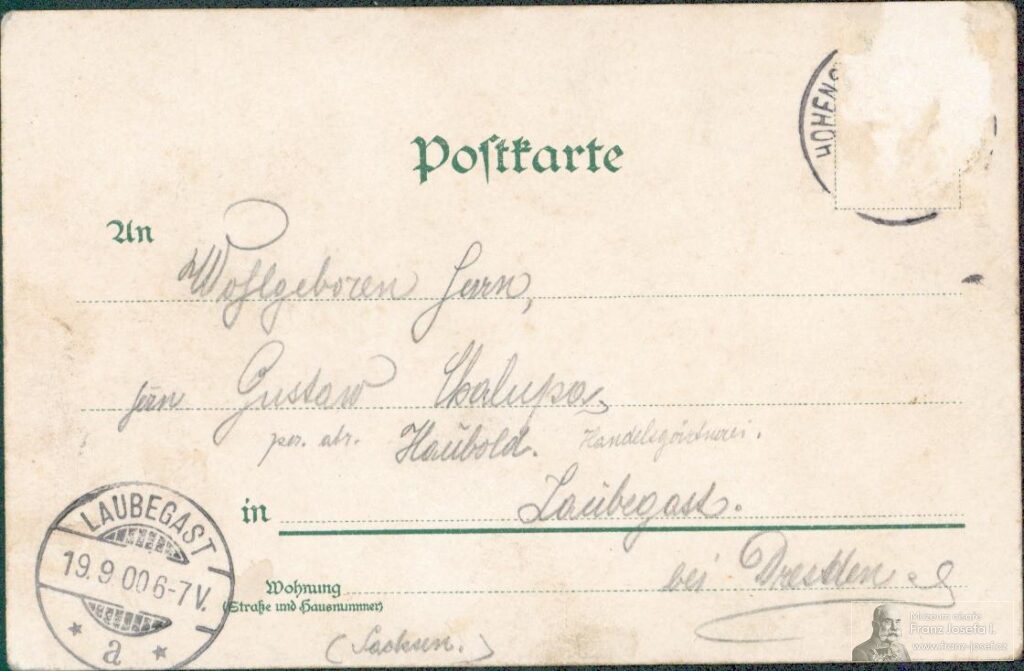 HOHENS
Postkarte
An
Wohlgeboren Herrn,
Herrn Gustaw Chalupa,
per. adr. Haubold. Handelsgärtnerei.
in Laubegast.
LAUBEGAST
19. 9 00 6-7 V.
a
Wohnung
(Straße und Hausnummer)
bei Dresden
(Sachsen.)
Muzeum císaře
Franz Josefa I.
www.franz-josef.cz